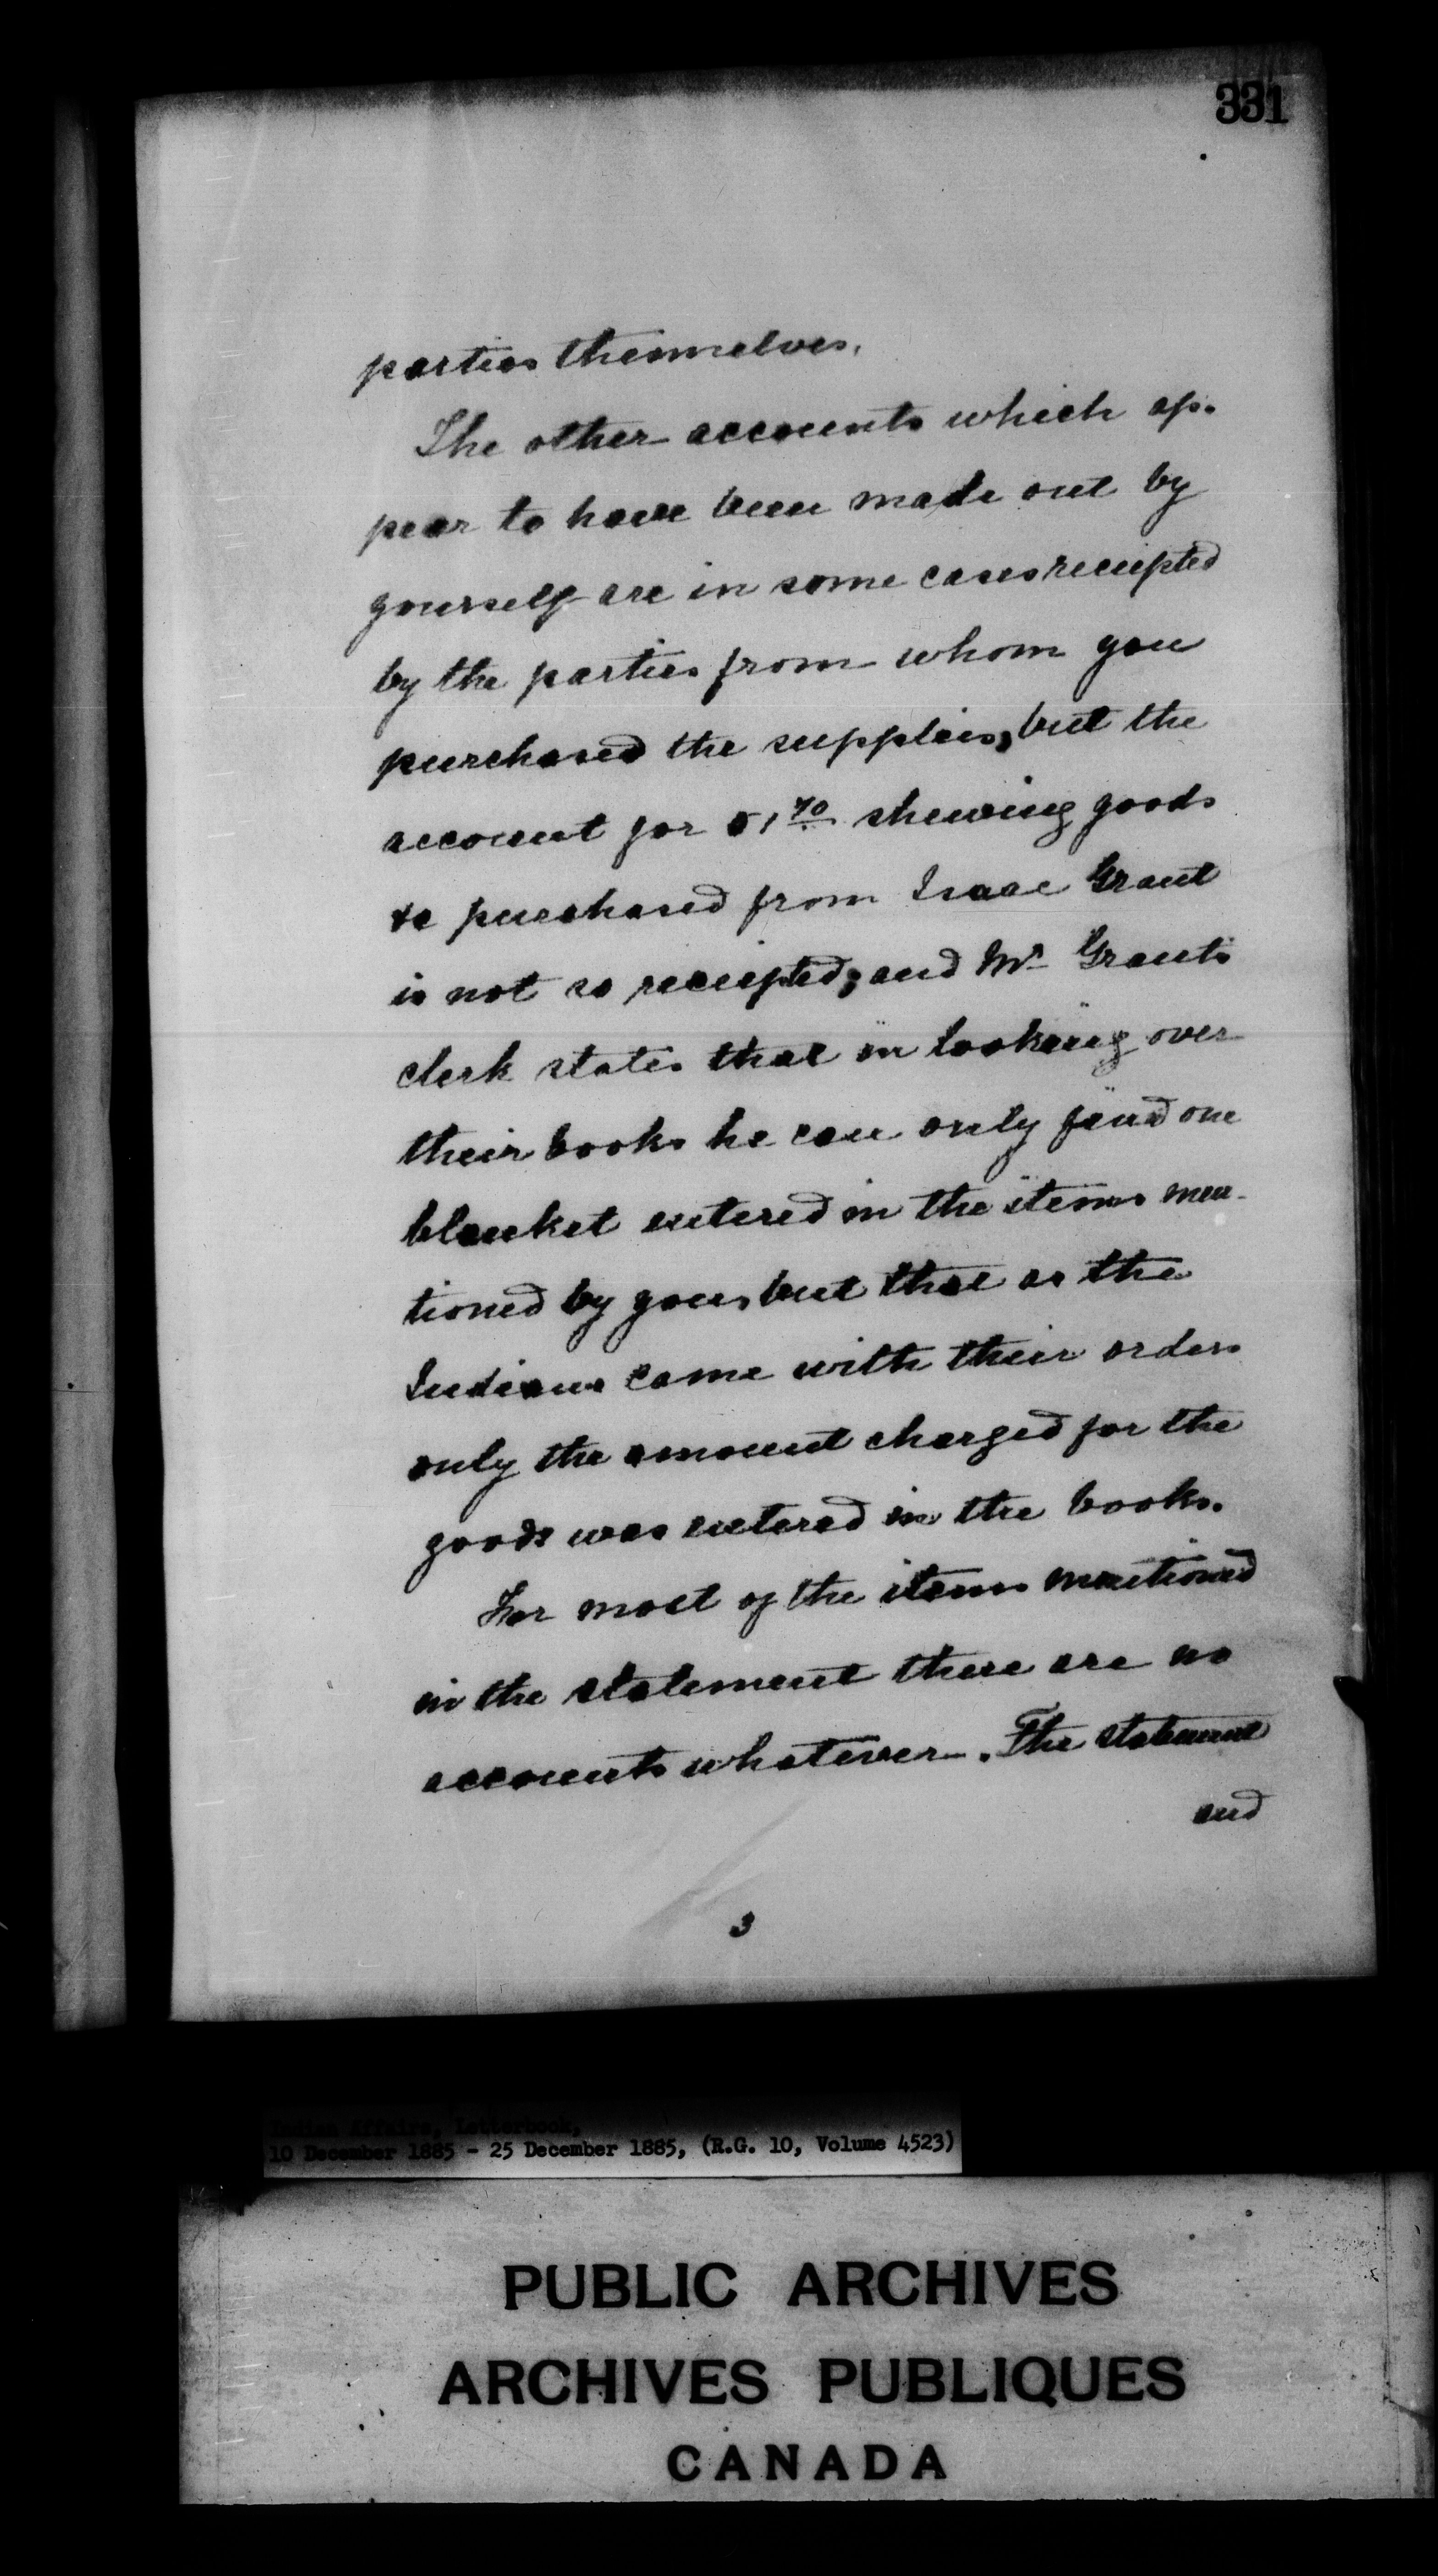 331
parties themselves.
The other accounts which ap-
pear to have been made out by
yourself are in some cases receipted
by the parties from whom you
purchased the supplies, but the
account for 51 70 shewing goods
to purchased from Isaac Grant
is not so receipted; and Mr Grant's
clerk states that in looking over
their books he can only find one
blanket entered in the items men-
tioned by you, but that as the
Indians came with their orders
only the amount charged for the
goods was entered in the books.
For most of the items mentioned
in the statement there are no
accounts whatever. The statement
and
3
Indian Affairs, Letterbook,
10 December 1885 - 25 December 1885, (R.G. 10, Volume 4523)
PUBLIC ARCHIVES
ARCHIVES PUBLIQUES
CANADA